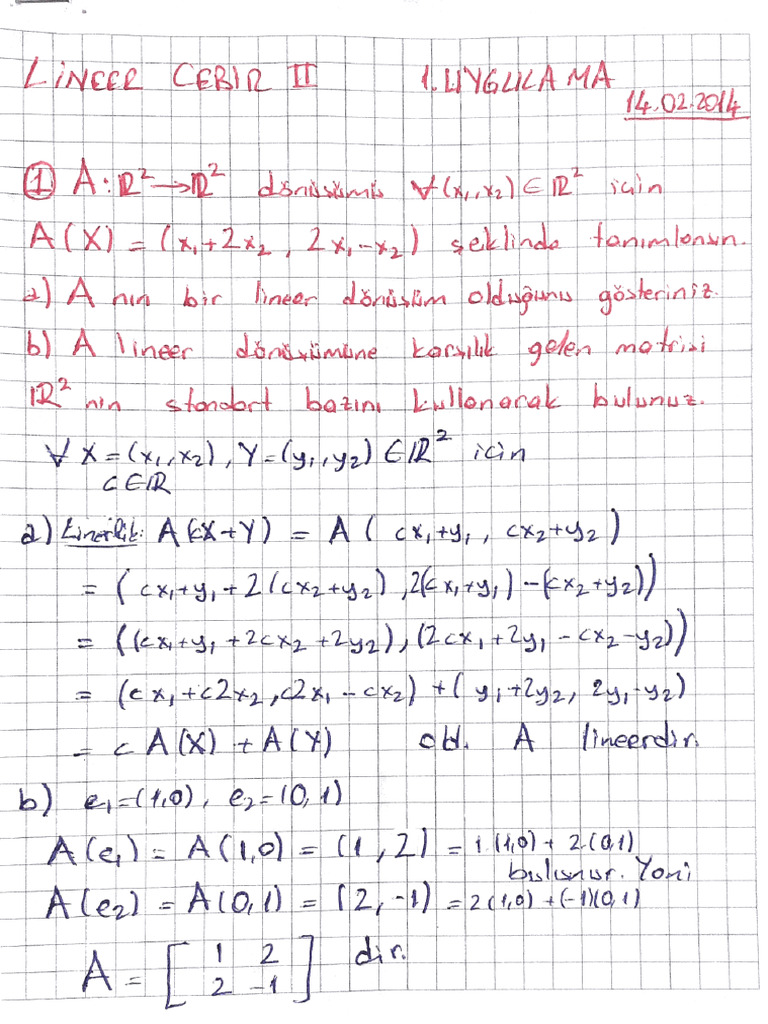 LİNEER CEBİR II 1. UYGULAMA
14.02.2014
① A : ℝ² → ℝ² dönüşümü ∀(x₁, x₂) ∈ ℝ² için
A(X) = (x₁+2x₂ , 2x₁-x₂) şeklinde tanımlansın.
a) A nın bir lineer dönüşüm olduğunu gösteriniz.
b) A lineer dönüşümüne karşılık gelen matrisi
ℝ² nin standart bazını kullanarak bulunuz.
∀ X = (x₁, x₂) , Y = (y₁, y₂) ∈ ℝ² için
c ∈ ℝ
a) Linerlik: A(cX+Y) = A( cx₁+y₁ , cx₂+y₂ )
= ( cx₁+y₁ + 2(cx₂+y₂) , 2(cx₁+y₁) - (cx₂+y₂))
= ((cx₁+y₁ + 2cx₂ + 2y₂), (2cx₁ + 2y₁ - cx₂ - y₂))
= (cx₁ + c2x₂ , c2x₁ - cx₂) + ( y₁+2y₂, 2y₁-y₂)
= c A(X) + A(Y) old. A lineerdir.
b) e₁=(1,0) , e₂=(0,1)
A(e₁) = A(1,0) = (1 , 2) = 1.(1,0) + 2.(0,1)
bulunur. Yani
A(e₂) = A(0,1) = (2, -1) = 2(1,0) + (-1)(0,1)
A = [ 1 2
2 -1 ] dir.